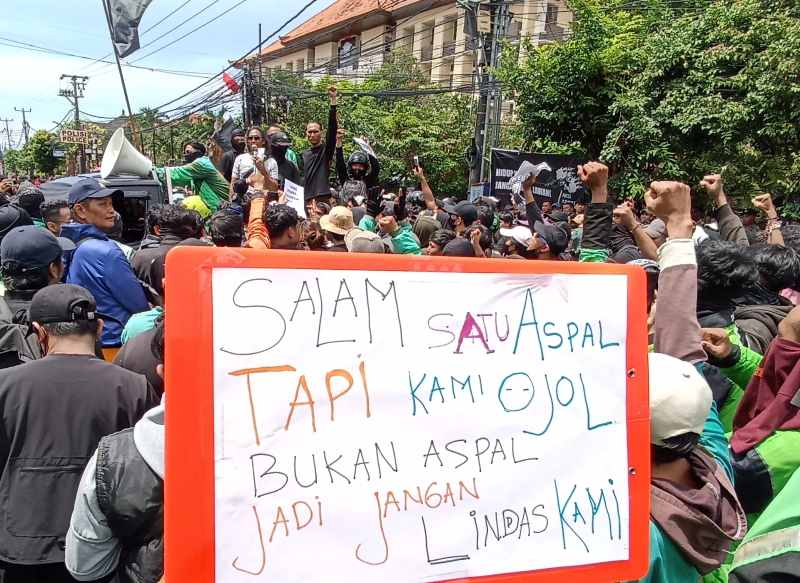 POLISI
HIDUP
JANGAN
SALAM SATU ASPAL
TAPI KAMI OJOL
BUKAN ASPAL
JADI JANGAN
LINDAS KAMI